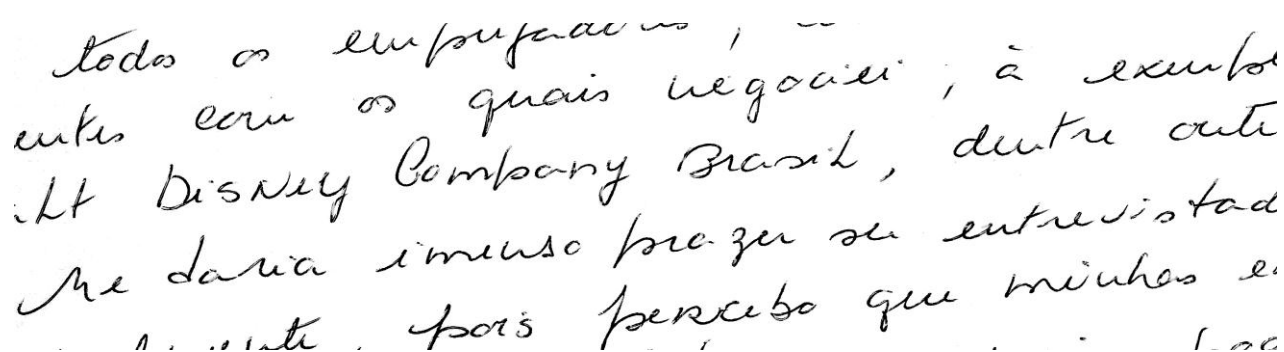 todos os empregadores,
entes com os quais negociei, à exemplo
alt DisNey Company Brasil, dentre outr
Me daria imenso prazer ser entrevistad
pois percebo que minhas e